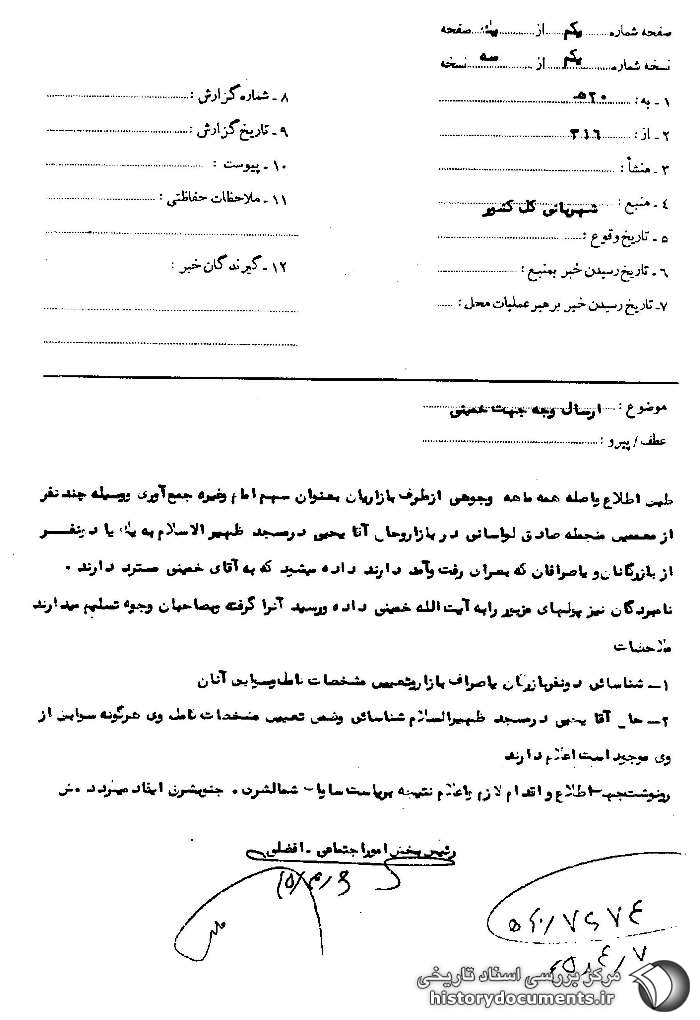 صفحه شماره یکم از یک صفحه
نسخه شماره یکم از سه نسخه
۱ - به: ۵۲۰
۲ - از: ۳۱۶
۳ - منشأ:
۴ - منبع: شهربانی کل کشور
۵ - تاریخ وقوع:
۶ - تاریخ رسیدن خبر بمنبع:
۷- تاریخ رسیدن خبر برهبر عملیات محل:
۸ - شماره گزارش:
۹ - تاریخ گزارش:
۱۰ - پیوست:
۱۱ - ملاحظات حفاظتی:
۱۲ - گیرندگان خبر:
موضوع: ارسال وجه جهت خمینی
عطف/پیرو:
طبق اطلاع واصله همه ماهه وجوهی ازطرف بازاریان بعنوان سهم امام وغیره جمع آوری ووسیله چند نفر
از معممین منجمله صادق لواسانی در بازار وحاج آقا یحیی درمسجد ظهیر الاسلام به یک یا دونفر
از بازرگانان ویاصرافان که بعراق رفت وآمد دارند داده میشود که به آقای خمینی مسترد دارند .
نامبردگان نیز پولهای مزبور رابه آیت الله خمینی داده ورسید آنرا گرفته وبصاحبان وجوه تسلیم میدارند
ملاحظات
۱- شناسائی دونفربازرگان یاصراف بازار وتعیین مشخصات کامل وسوابق آنان
۲- حاج آقا یحیی درمسجد ظهیرالاسلام شناسائی وضمن تعیین مشخصات کامل وی هرگونه سوابق از
وی موجود است اعلام دارند
رونوشت جهت اطلاع و اقدام لازم واعلام نتیجه بریاست ساواک شمالشرق . جنوبشرق ایفاد میگردد .ش
رئیس بخش امور اجتماعی - افضلی
مرکز بررسی اسناد تاریخی
historydocuments.ir